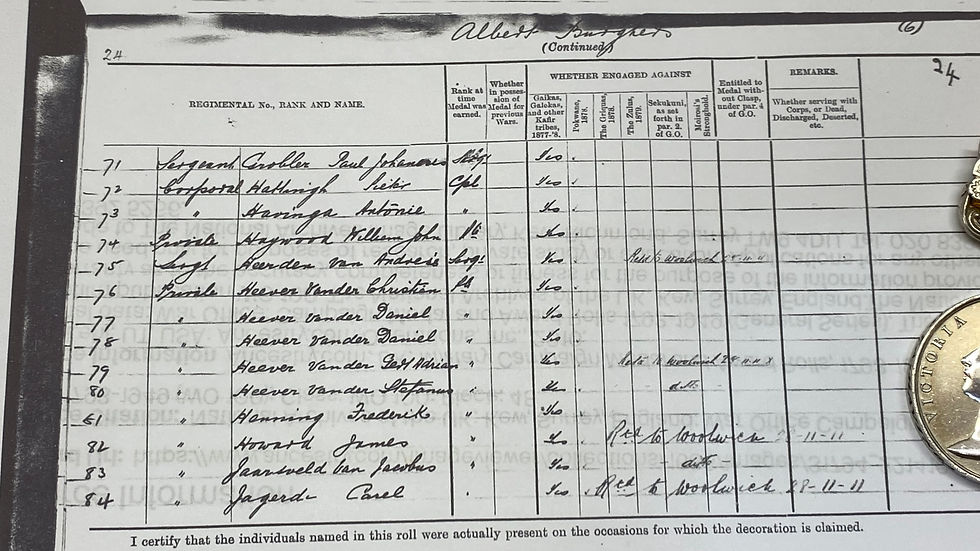 Albert Burghers (6)
(Continued)
24
24
REGIMENTAL No., RANK AND NAME.
Rank at time Medal was earned.
Whether in possession of Medal for previous Wars.
WHETHER ENGAGED AGAINST
Gaikas, Galekas, and other Kafir tribes, 1877-'8.
Pokwane, 1878.
The Griquas, 1878.
The Zulus, 1879.
Sekukuni, as set forth in par. 2. of G.O.
Moirosi's Stronghold.
Entitled to Medal without Clasp, under par. 4 of G.O.
REMARKS.
Whether serving with Corps, or Dead, Discharged, Deserted, etc.
71 Sergeant Grobler Paul Johannes Sergt Yes
72 Corporal Hattingh Pieter Cpl Yes
73 " Havinga Antonie " Yes
74 Private Haywood William John Pte Yes
75 Sergt Heerden van Andreis Sergt Yes Retd to Woolwich 28-11-11
76 Private Heever Vander Christian Pte Yes
77 " Heever Vander Daniel " Yes
78 " Heever Vander Daniel " Yes
79 " Heever Vander Adrian " Yes Retd to Woolwich
80 " Heever Vander Stefanus " Yes ditto
81 " Henning Frederik " Yes
82 " Howard James " Yes Red to Woolwich 28-11-11
83 " Jaarsveld Van Jacobus " Yes ditto
84 " Jagerde Carel " Yes Red to Woolwich 28-11-11
I certify that the individuals named in this roll were actually present on the occasions for which the decoration is claimed.
VICTORIA